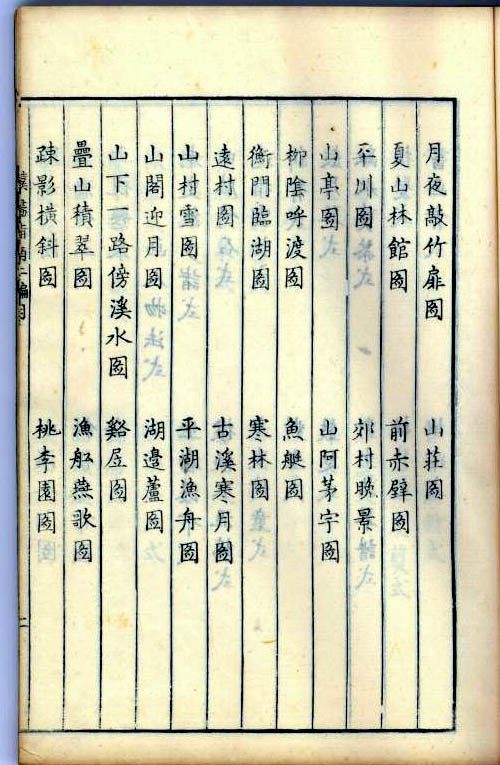 月夜敲竹扉圖 山莊圖
夏山林館圖 前赤壁圖
平川圖 郊村晚景
山亭圖 山阿茅宇圖
柳陰呼渡圖 魚艇圖
衡門臨湖圖 寒林圖
遠村圖 古溪寒月圖
山村雪圖 平湖漁舟圖
山閣迎月圖 湖邉蘆圖
山下一路傍溪水圖 谿居圖
疊山積翠圖 漁船燕歌圖
疎影橫斜圖 桃李園圖